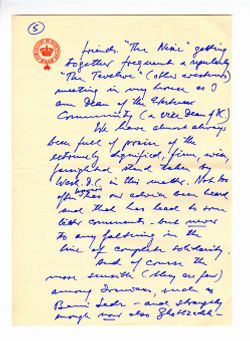 5
friends. "The Nine" getting
together frequent & regularly
"The Twelve" (other westerners)
meeting in my house as I
am Dean of the
Community (a vice Dean of
We have almost always
been full of praise of the
extremely dignified, firm, wise
farsighted stand taken by
Wash. D.C. in this matter. Not too
often has our advice been heard
and that has lead to some
bitter comments - but never
to any faltering in the
line of complete solidarity.
And of course the
more sensible (they are few)
among Iranians, such as
Bani Sadr - and strangely
enough now also